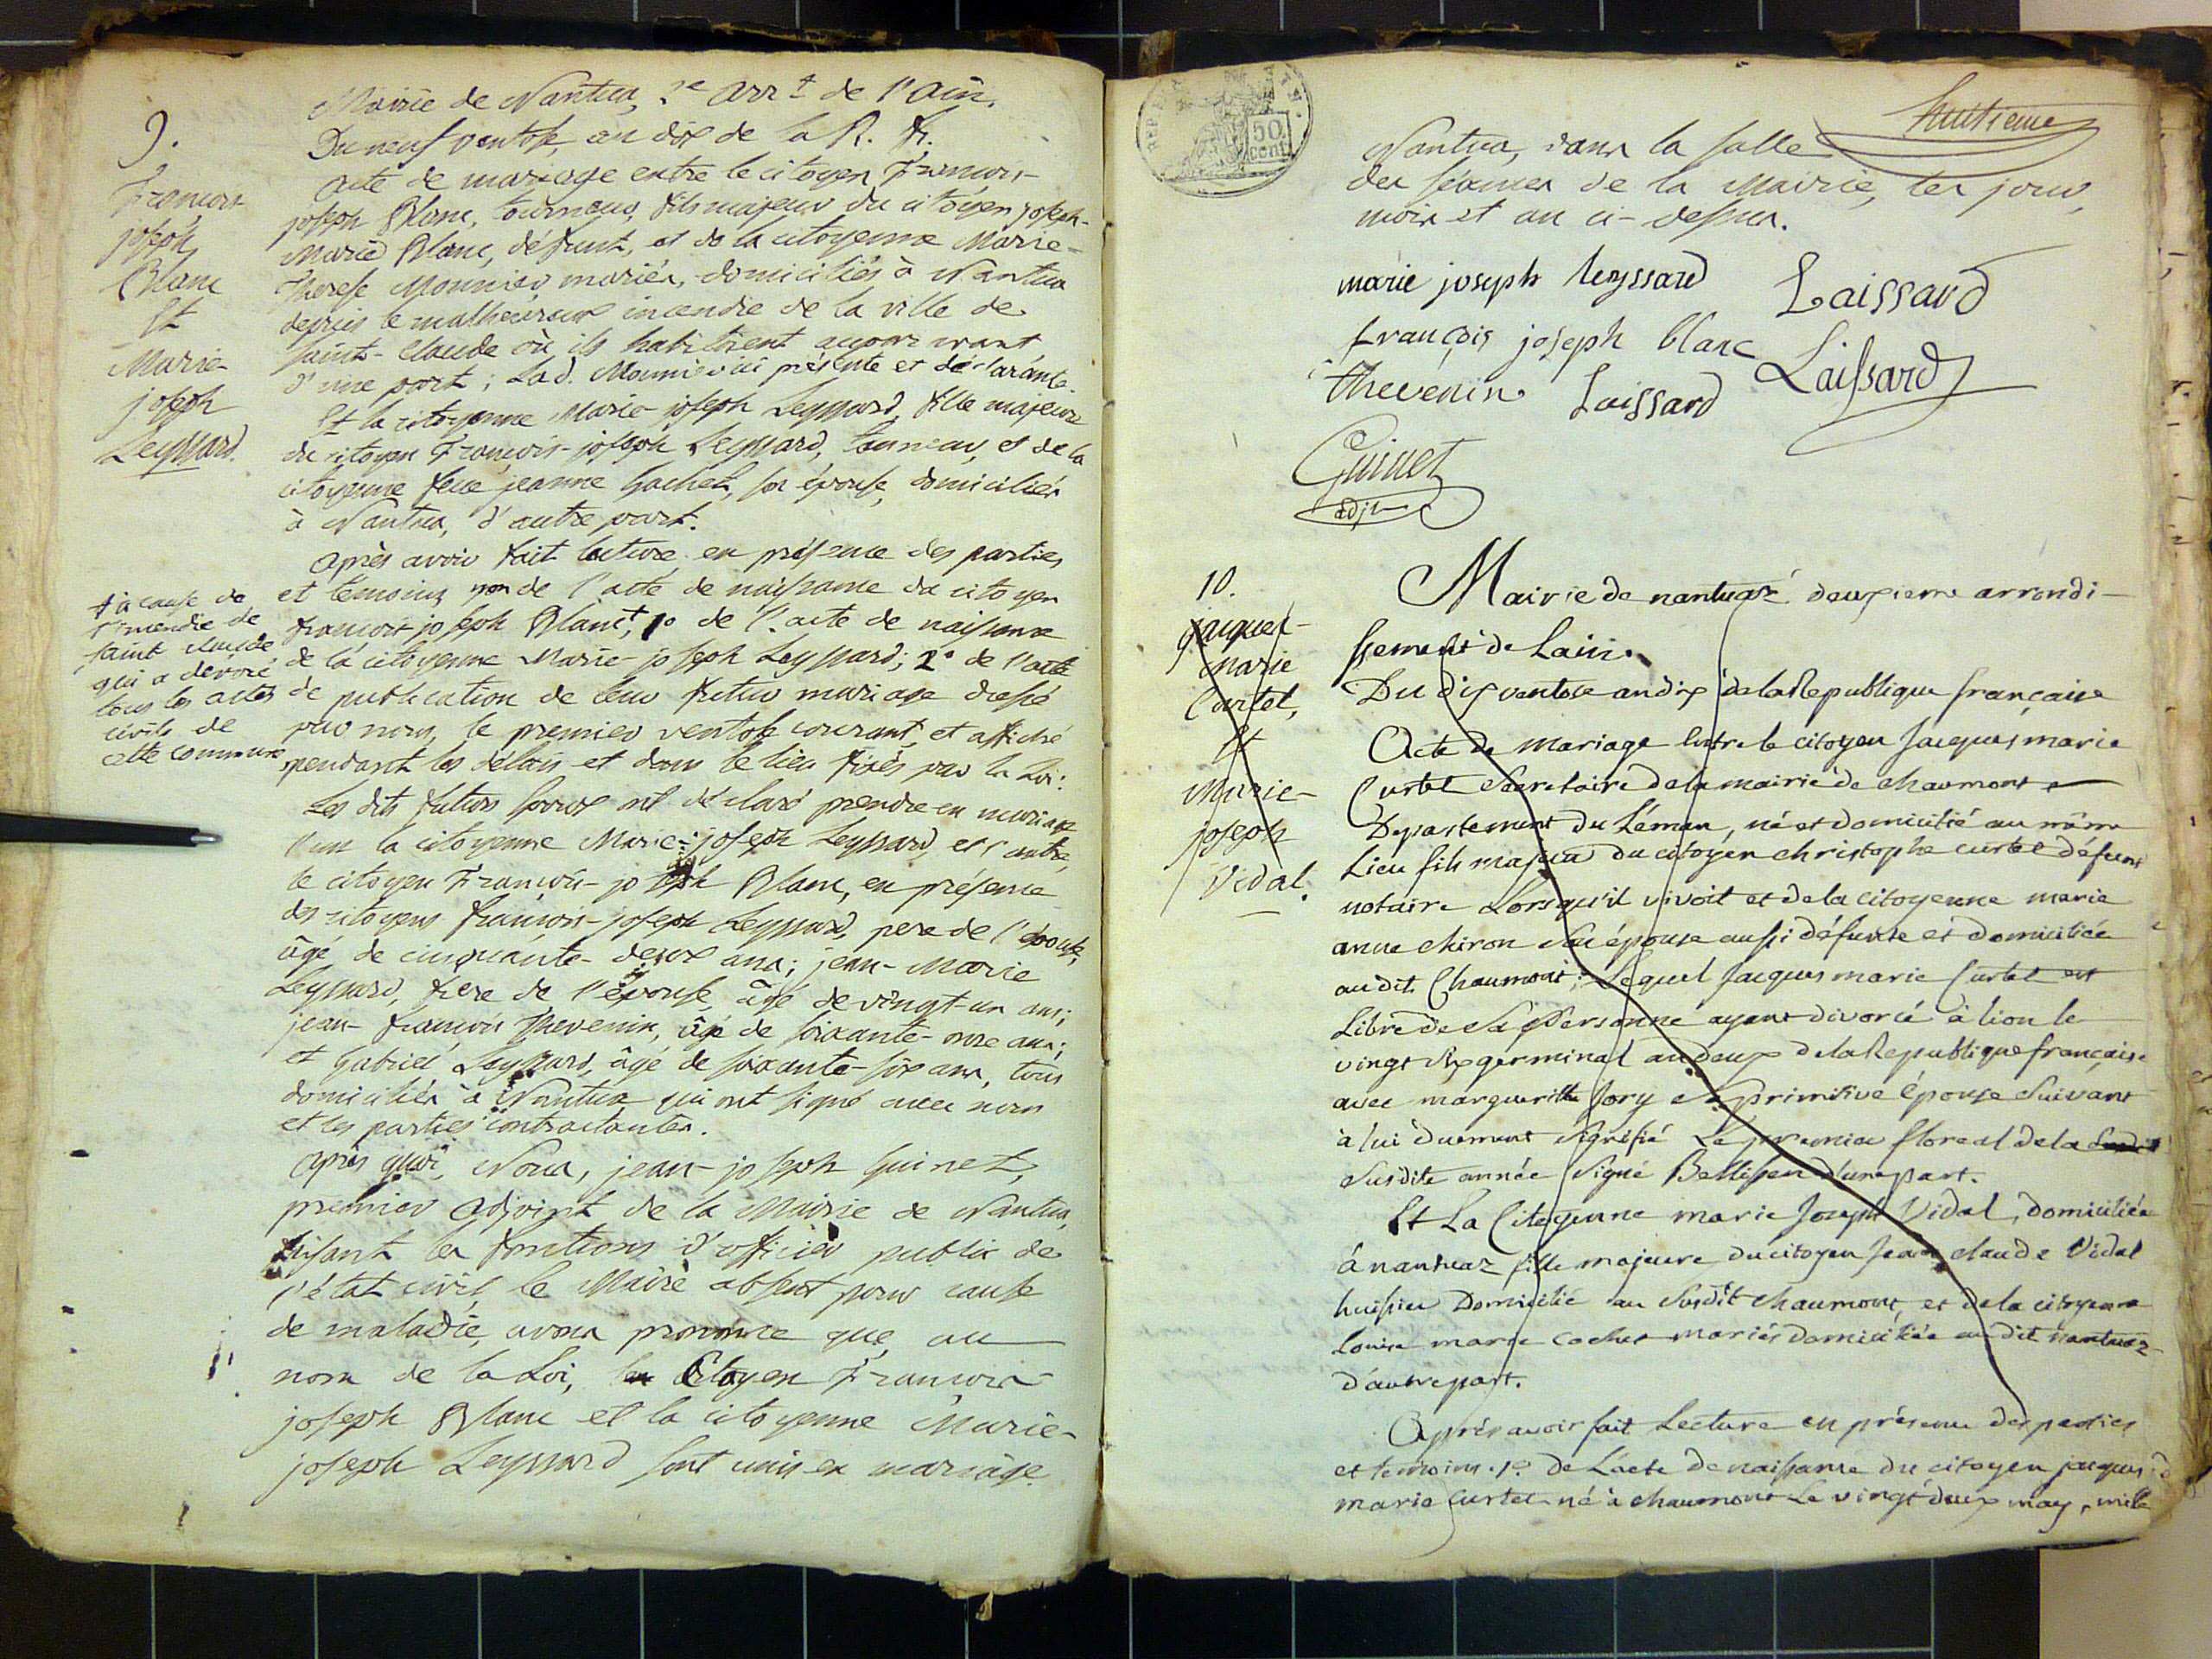 9.
François
joseph
Blanc
Et
Marie-
joseph
Leyssard.
Mairie de Nantua, 2e arrt de l'Ain.
Du neuf ventose, an dix de la R. fr.
acte de mariage entre le citoyen François-
joseph Blanc, tourneur, fils majeur du citoyen joseph-
Marie Blanc, défunt, et de la citoyenne Marie-
Therese Monnier, mariés, domiciliés à Nantua
depuis le malheureux incendie de la ville de
saint-Claude où ils habitoient auparavant
d'une part; Lad. Monnier ici présente et déclarante.
Et la citoyenne Marie-joseph Leyssard, fille majeure
du citoyen François-joseph Leyssard, tourneur, et de la
citoyenne feue jeanne Gachet, son épouse, domiciliés
à Nantua, d'autre part.
Après avoir fait lecture en présence des parties
et temoins, non de l'acte de naissance du citoyen
françois-joseph Blanc†, 1º de l'acte de naissance
de la citoyenne Marie-joseph Leyssard; 2º de l'acte
de publication de leur futur mariage dressé
par nous, le premier ventose courant, et affiché
pendant les délais et dans le lieu fixés par la Loi:
† à cause de
l'incendie de
saint claude
qui a dévoré
tous les actes
civils de
cette commune
Les dits futurs époux ont déclaré prendre en mariage
l'un la citoyenne Marie-joseph Leyssard, et l'autre,
le citoyen François-joseph Blanc, en présence
des citoyens françois-joseph Leyssard, pere de l'épouse,
âgé de cinquante-deux ans; jean-Marie
Leyssard, frere de l'épouse, âgé de vingt-un ans;
jean-françois Thevenin, âgé de soixante-onze ans;
et Gabriel Leyssard, âgé de soixante-six ans, tous
domiciliés à Nantua qui ont signé avec nous
et les parties contractantes.
Après quoi, Nous, jean-joseph Guinet,
premier adjoint de la Mairie de Nantua,
faisant les fonctions d'officier public de
l'état civil, le Maire absent pour cause
de maladie, avons prononcé que, au
nom de la Loi, le Citoyen François-
joseph Blanc et la citoyenne Marie-
joseph Leyssard sont unis en mariage.
huitieme
50
cent
Nantua, dans la salle
des séances de la Mairie, les jour,
mois et an ci-dessus.
marie joseph leyssard Laissard
françois joseph blanc
thevenin Laissard Laissard
Guinet
adjt
10.
jacques-
Marie
Curtet,
Et
Marie-
joseph
Vidal.
Mairie de nantuaz deuxieme arrondi-
ssement de Lain.
Du dix ventose an dix de la Republique française
Acte de mariage Entre le citoyen Jacques marie
Curtet Secretaire de la mairie de chaumont
Departement du Léman, né et domicilié au même
Lieu fils majeur du citoyen christophe curtet défunt
notaire Lorsqu'il vivoit et de la citoyenne marie
anne chiron son épouse aussi défunte et domiciliée
audit Chaumont; Lequel Jacques marie Curtet est
Libre de Sa Personne ayant divorcé à lion le
vingt six germinal an deux de la Republique française
avec marguerite Jory Sa primitive épouse Suivant
à lui duement signifié Le premier floreal de la
Susdite année Signé Bellissen d'une part.
Et La Citoyenne marie Joseph Vidal, domiciliée
à nantuaz fille majeure du citoyen Jean claude Vidal
huissier Domicilié au Susdit chaumont, et de la citoyenne
Louise marie cochet mariés domiciliée audit nantuaz
d'autre part.
Après avoir fait Lecture en présence des parties
et temoins. 1º De L'acte De naissance du citoyen jacques
marie Curtet né à chaumont Le vingt deux may, mille